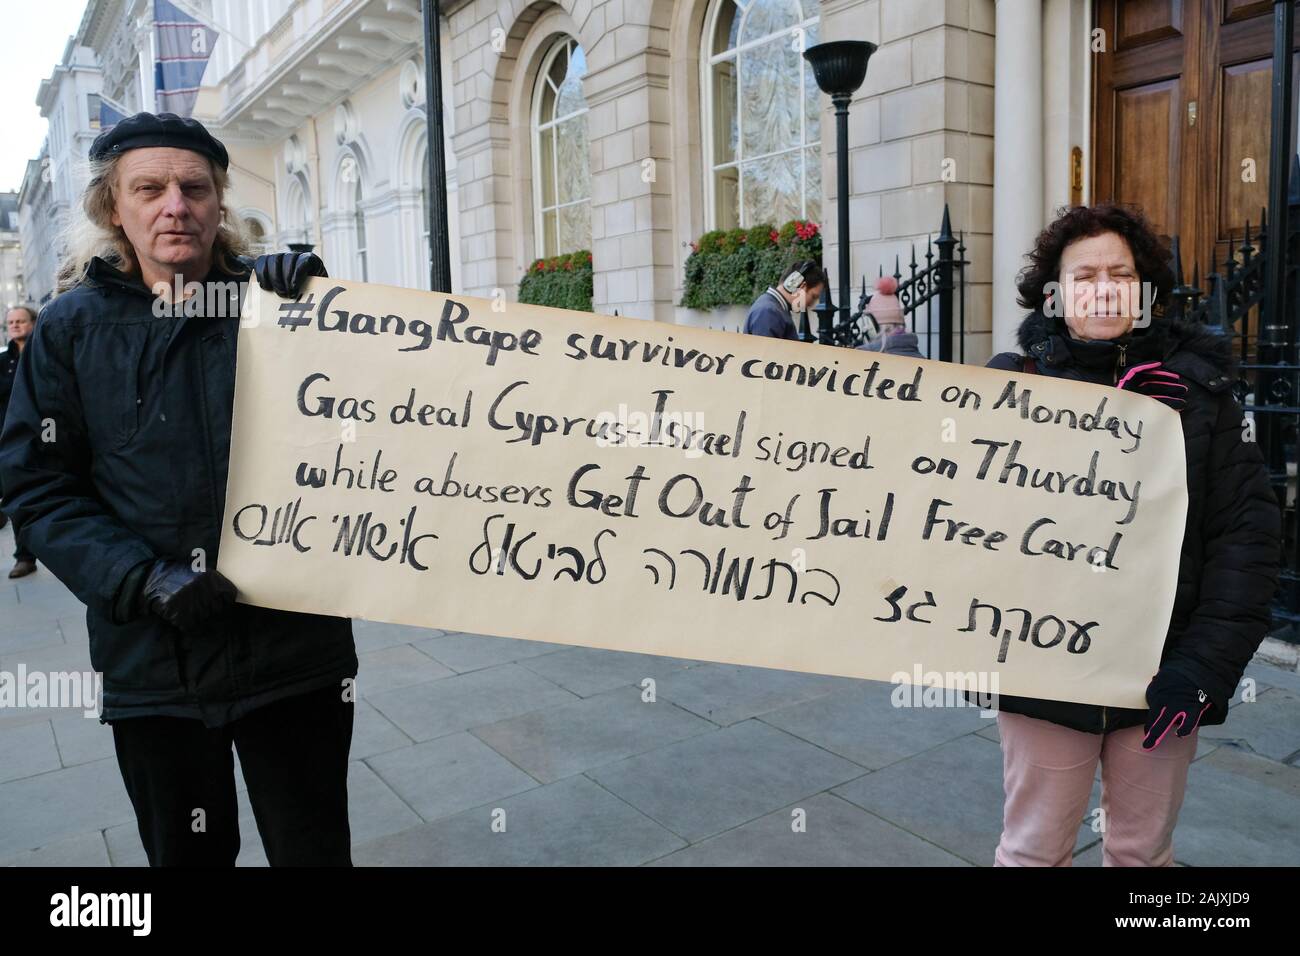 #GangRape survivor convicted on Monday
Gas deal Cyprus-Israel signed on Thurday
while abusers Get Out of Jail Free Card
עסקת גז בתמורה לביטול אישומי אונס
a alamy stock photo
alamy
Image ID: 2AJXJD9
www.alamy.com